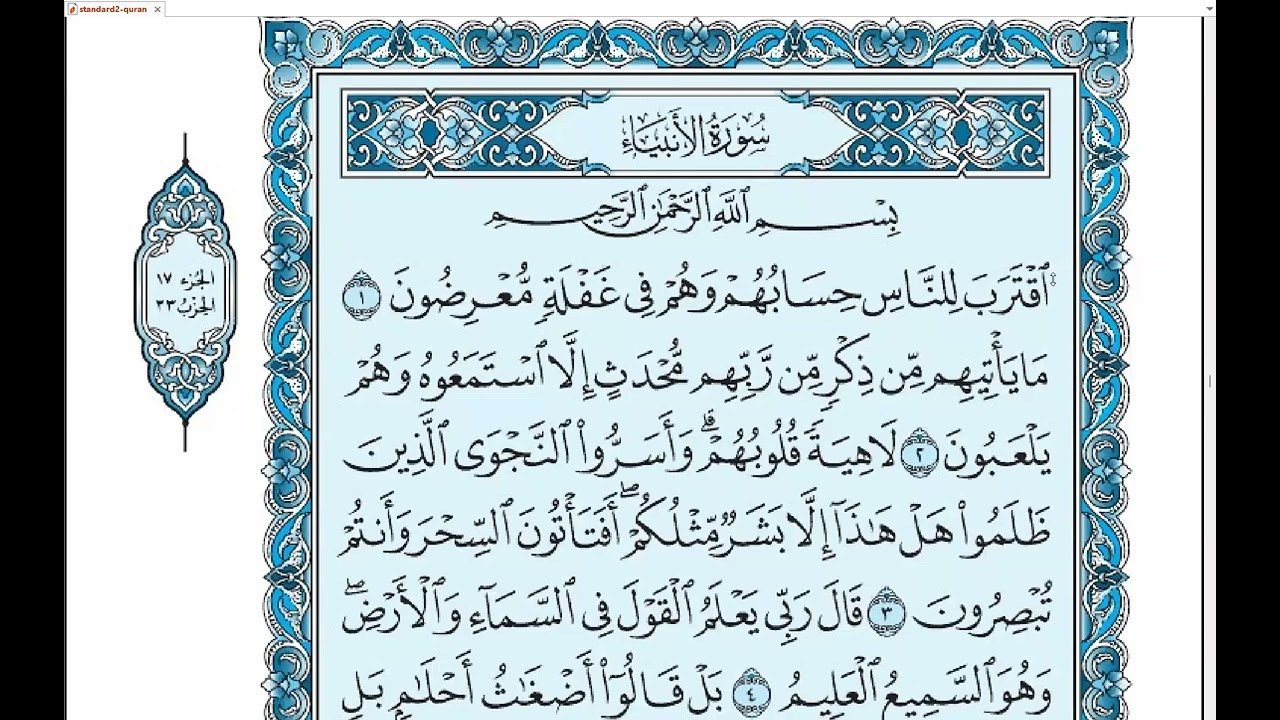 standard2-quran
سُورَةُ الأَنبِيَاءِ
بِسْمِ ٱللَّهِ ٱلرَّحْمَٰنِ ٱلرَّحِيمِ
الجُزء ١٧
الحِزبُ ٣٣
ٱقْتَرَبَ لِلنَّاسِ حِسَابُهُمْ وَهُمْ فِى غَفْلَةٍ مُّعْرِضُونَ ١
مَا يَأْتِيهِم مِّن ذِكْرٍ مِّن رَّبِّهِم مُّحْدَثٍ إِلَّا ٱسْتَمَعُوهُ وَهُمْ
يَلْعَبُونَ ٢ لَاهِيَةً قُلُوبُهُمْ ۗ وَأَسَرُّوا۟ ٱلنَّجْوَى ٱلَّذِينَ
ظَلَمُوا۟ هَلْ هَٰذَآ إِلَّا بَشَرٌ مِّثْلُكُمْ ۖ أَفَتَأْتُونَ ٱلسِّحْرَ وَأَنتُمْ
تُبْصِرُونَ ٣ قَالَ رَبِّى يَعْلَمُ ٱلْقَوْلَ فِى ٱلسَّمَآءِ وَٱلْأَرْضِ ۖ
وَهُوَ ٱلسَّمِيعُ ٱلْعَلِيمُ ٤ بَلْ قَالُوٓا۟ أَضْغَٰثُ أَحْلَٰمٍ بَلِ